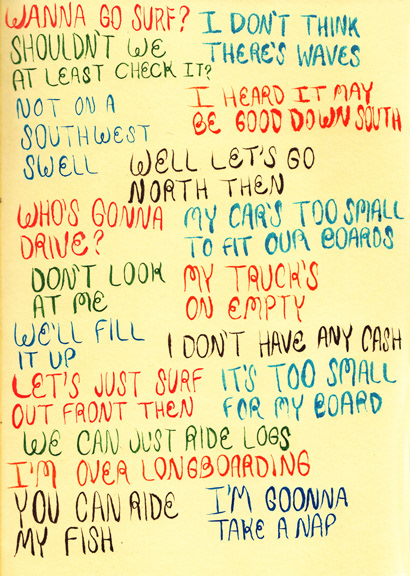 WANNA GO SURF?
I DON'T THINK
THERE'S WAVES
SHOULDN'T WE
AT LEAST CHECK IT?
I HEARD IT MAY
BE GOOD DOWN SOUTH
NOT ON A
SOUTHWEST
SWELL
WELL LET'S GO
NORTH THEN
WHO'S GONNA
DRIVE?
MY CAR'S TOO SMALL
TO FIT OUR BOARDS
DON'T LOOK
AT ME
MY TRUCK'S
ON EMPTY
WE'LL FILL
IT UP
I DON'T HAVE ANY CASH
LET'S JUST SURF
OUT FRONT THEN
IT'S TOO SMALL
FOR MY BOARD
WE CAN JUST RIDE LOGS
I'M OVER LONGBOARDING
YOU CAN RIDE
MY FISH
I'M GOONNA
TAKE A NAP